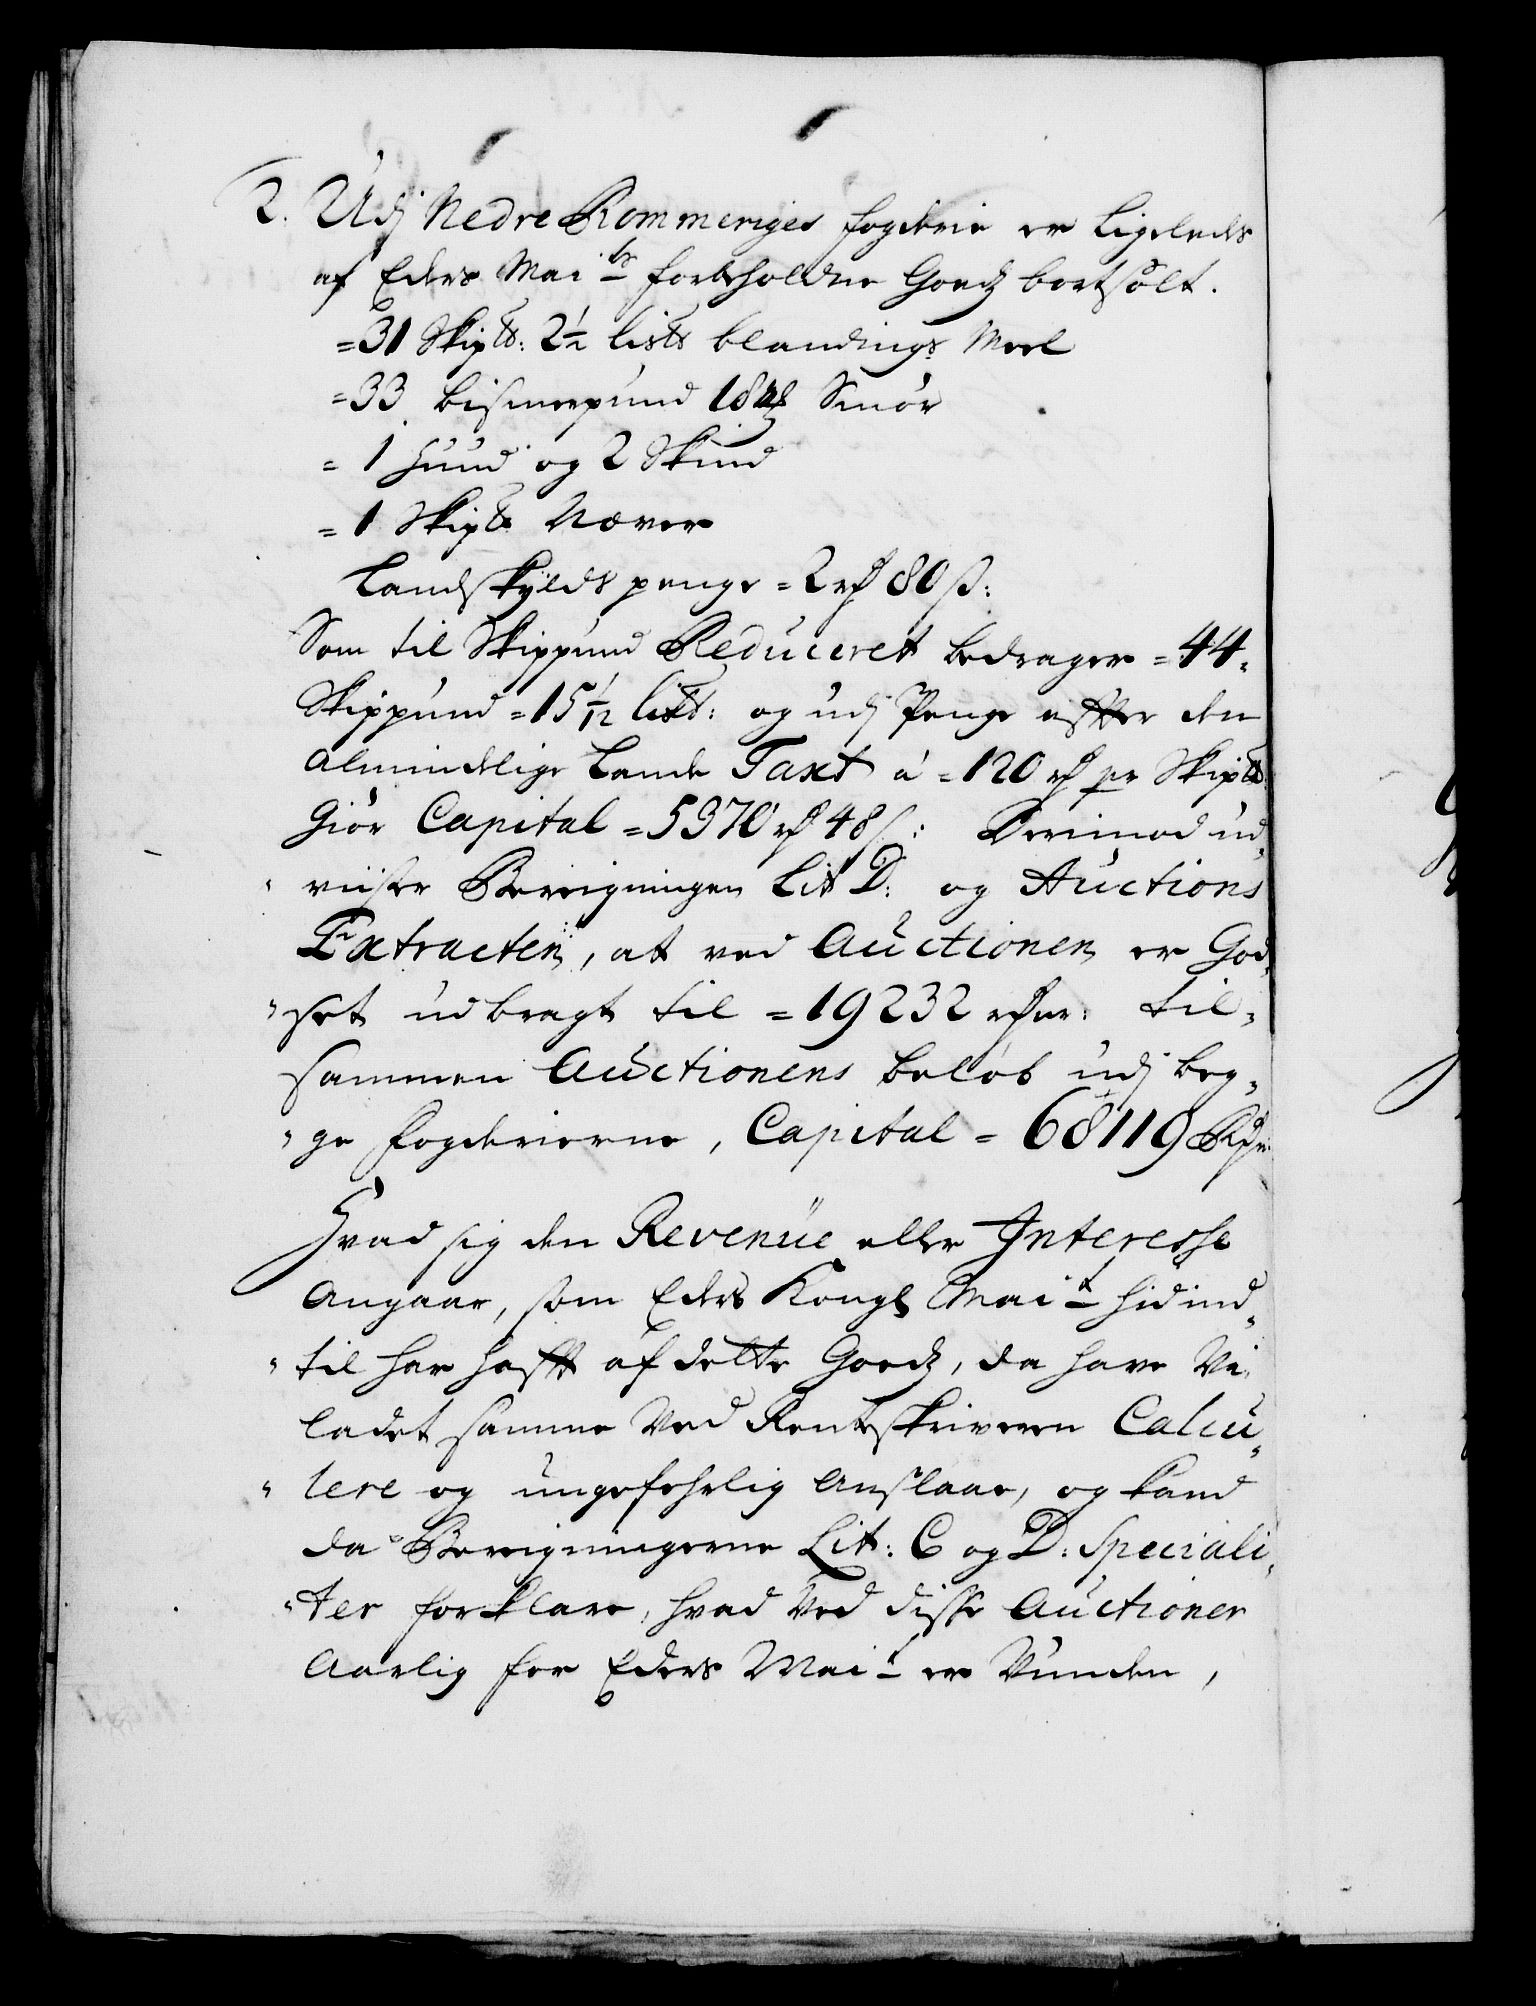 2. Udj Nedre Rommeriges fogderie er ligeleds
af Eders Mai.ts forbeholdne Goedz bortsolt.
=31 Skip℔: 2½ lis℔ blandings Meel
=33 bismerpund 18 Smør
= 1 Huud og 2 Skind
= 1 Skip℔ Næver
Landskÿlds penge = 2 rd 80 ß:
Som til Skippund Reduceret bedrager = 44
Skippund = 15 1/12 lis℔: og udj Penge effter den
Almindelige Lande Taxt á = 120 rd pr Skip℔
Giør Capital = 5370 rd 48 ß: Derimod ud-
"viiser Beregningen Lit D: og Auctions
Extracten, at ved Auctionen er God-
"set udbragt til = 19232 rdr: til-
sammen Auctionens beløb udj beg-
"ge fogderierne, Capital = 68119 Rdr
Hvad sig den Revenüe eller Interesse
Angaar, som Eders Kongl Mait hidind-
"til har hafft af dette Goedz, da have Vi
ladet samme Ved Renteskriveren Calcu-
"lere og ungefehrlig Anslaae, og kand
da Beregningerne Lit: C og D: Speciali-
"ter forklare, hvad Ved disse Auctioner
Aarlig for Eders Mait er Vunden,